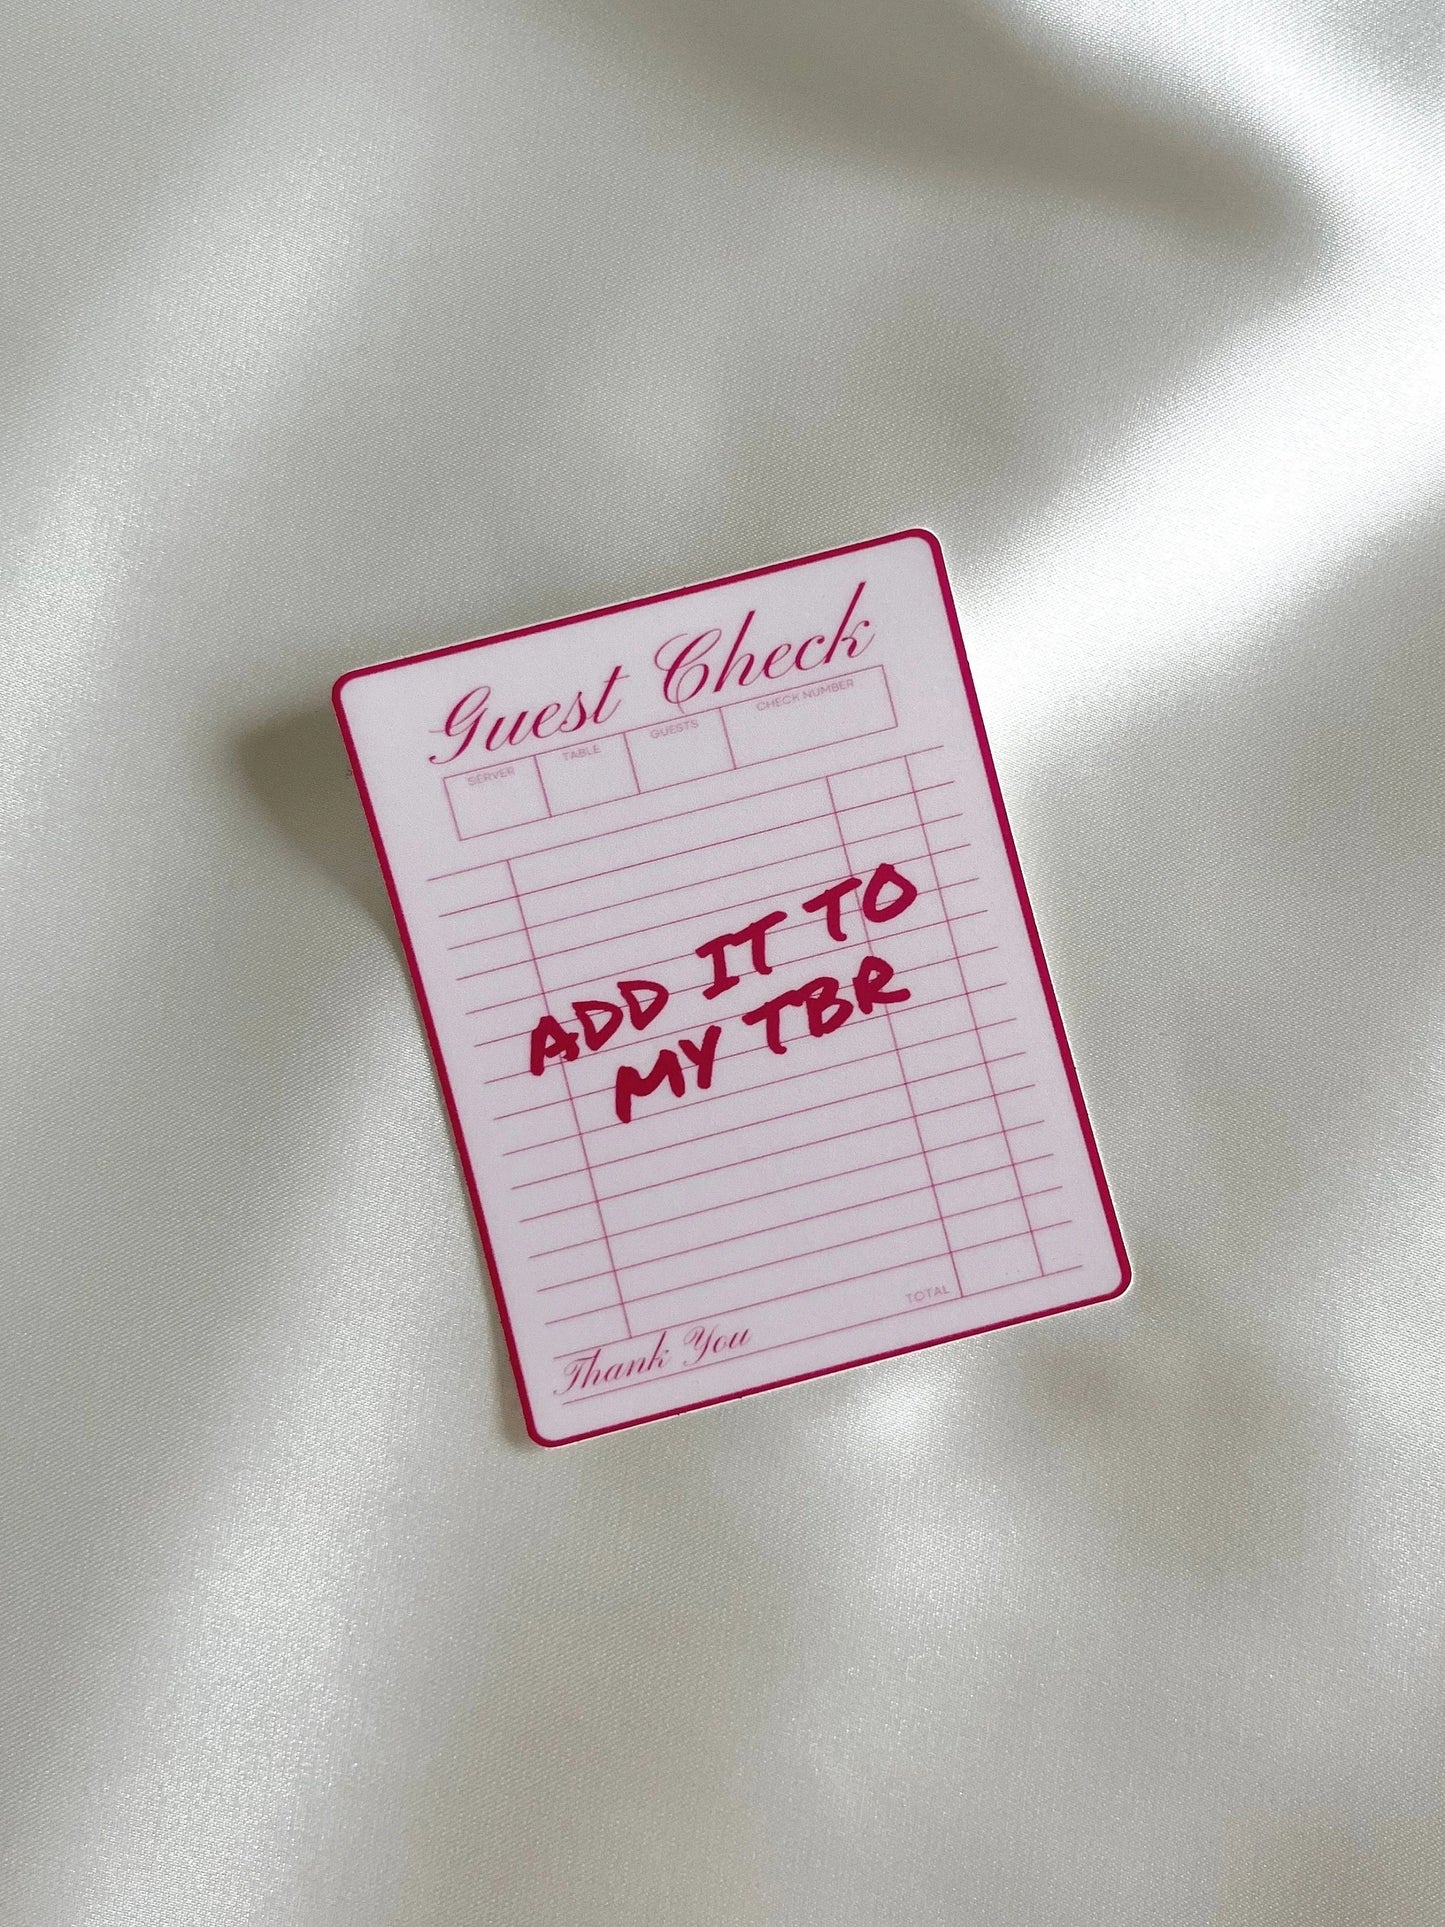 Guest Check
SERVER TABLE GUESTS CHECK NUMBER
ADD IT TO
MY TBR
TOTAL
Thank You